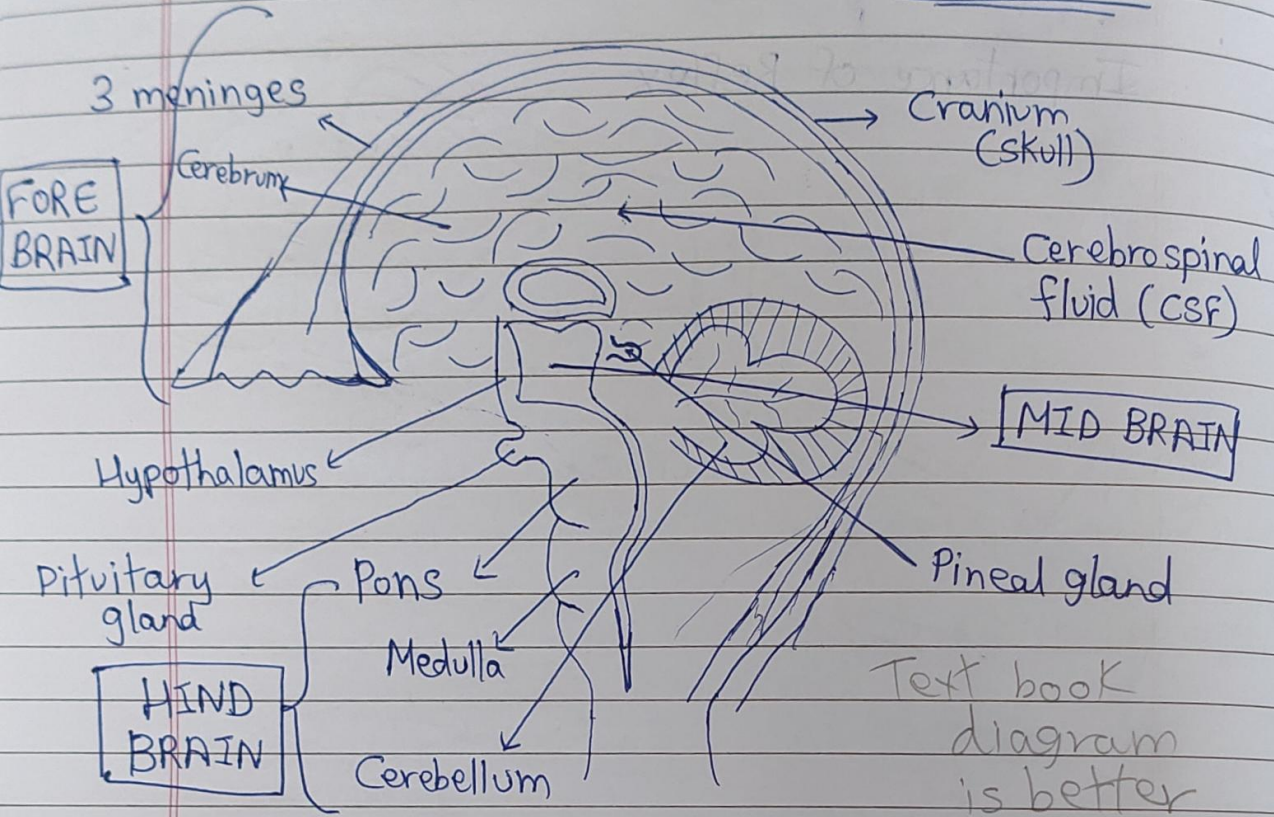 3 meninges
Cranium
(skull)
Cerebrum
FORE
BRAIN
Cerebrospinal
fluid (CSF)
MID BRAIN
Hypothalamus
Pineal gland
Pituitary
gland
Pons
Medulla
HIND
BRAIN
Cerebellum
Text book
diagram
is better